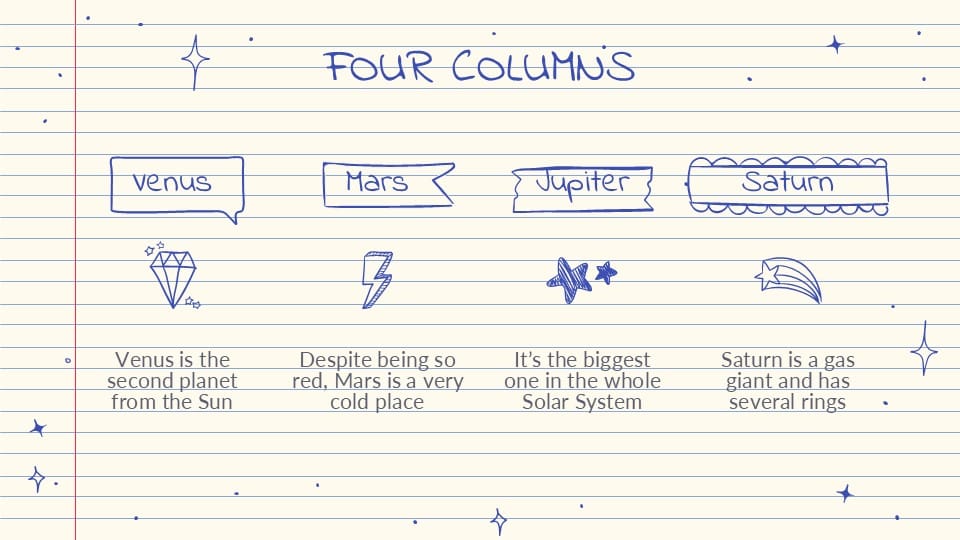 FOUR COLUMNS
Venus
Mars
Jupiter
Saturn
Venus is the
second planet
from the Sun
Despite being so
red, Mars is a very
cold place
It’s the biggest
one in the whole
Solar System
Saturn is a gas
giant and has
several rings